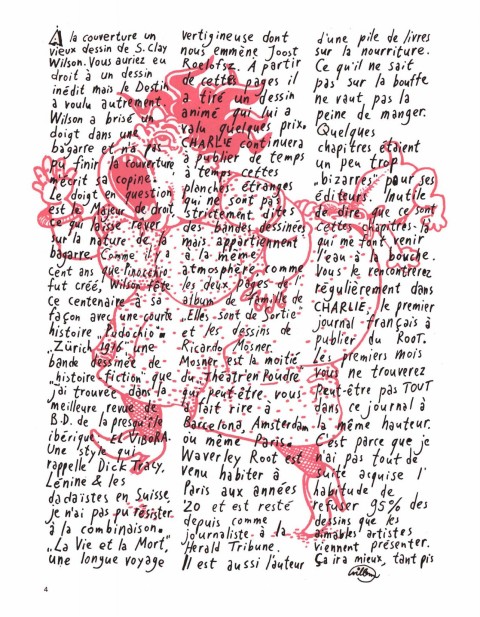 À la couverture un
vieux dessin de S. Clay
Wilson. Vous auriez eu
droit à un dessin
inédit mais le Destin
a voulu autrement.
Wilson a brisé un
doigt dans une
bagarre et n'a pas
pu finir la couverture
m'écrit sa copine.
Le doigt en question
est le Majeur de droit,
ce qui laisse rêver
sur la nature de la
bagarre. Comme il y a
cent ans que Pinocchio
fut créé, Wilson fête
ce centenaire à sa
façon avec une courte
histoire "Pudochio".
"Zürich 1916" une
bande dessinée de
"histoire fiction" que
j'ai trouvée dans la
meilleure revue de
B.D. de la presqu'île
ibérique, EL VIBORA.
Une style qui
rappelle Dick Tracy,
Lénine & les
dadaïstes en Suisse,
je n'ai pas pu résister
à la combinaison.
"La Vie et la Mort",
une longue voyage
vertigineuse dont
nous emmène Joost
Roelofsz. A partir
de cettes pages il
a tiré un dessin
animé qui lui a
valu quelques prix.
CHARLIE continuera
à publier de temps
à temps cettes
planches étranges
qui ne sont pas
strictement dites
des bandes dessinées
mais appartiennent
à la même
atmosphère comme
les deux pages de l'
album de famille de
"Elles sont de Sortie"
et les dessins de
Ricardo Mosner.
Mosner est la moitié
du "Théâtr'en Poudre"
qui peut-être vous
a fait rire à
Barcelona, Amsterdam
ou même Paris.
Waverley Root est
venu habiter à
Paris aux années
'20 et est resté
depuis comme
journaliste à la
Herald Tribune.
Il est aussi l'auteur
d'une pile de livres
sur la nourriture.
Ce qu'il ne sait
pas sur la bouffe
ne vaut pas la
peine de manger.
Quelques
chapitres étaient
un peu trop
"bizarres" pour ses
éditeurs. Inutile
de dire que ce sont
cettes chapitres-là
qui me font venir
l'eau à la bouche.
Vous le rencontrerez
régulièrement dans
CHARLIE, le premier
journal français à
publier du ROOT.
Les premiers mois
vous ne trouverez
peut-être pas TOUT
dans ce journal à
la même hauteur.
C'est parce que je
n'ai pas tout de
suite acquise l'
habitude de
refuser 95% des
dessins que les
aimables artistes
viennent présenter.
Ça ira mieux, tant pis
Willem
4